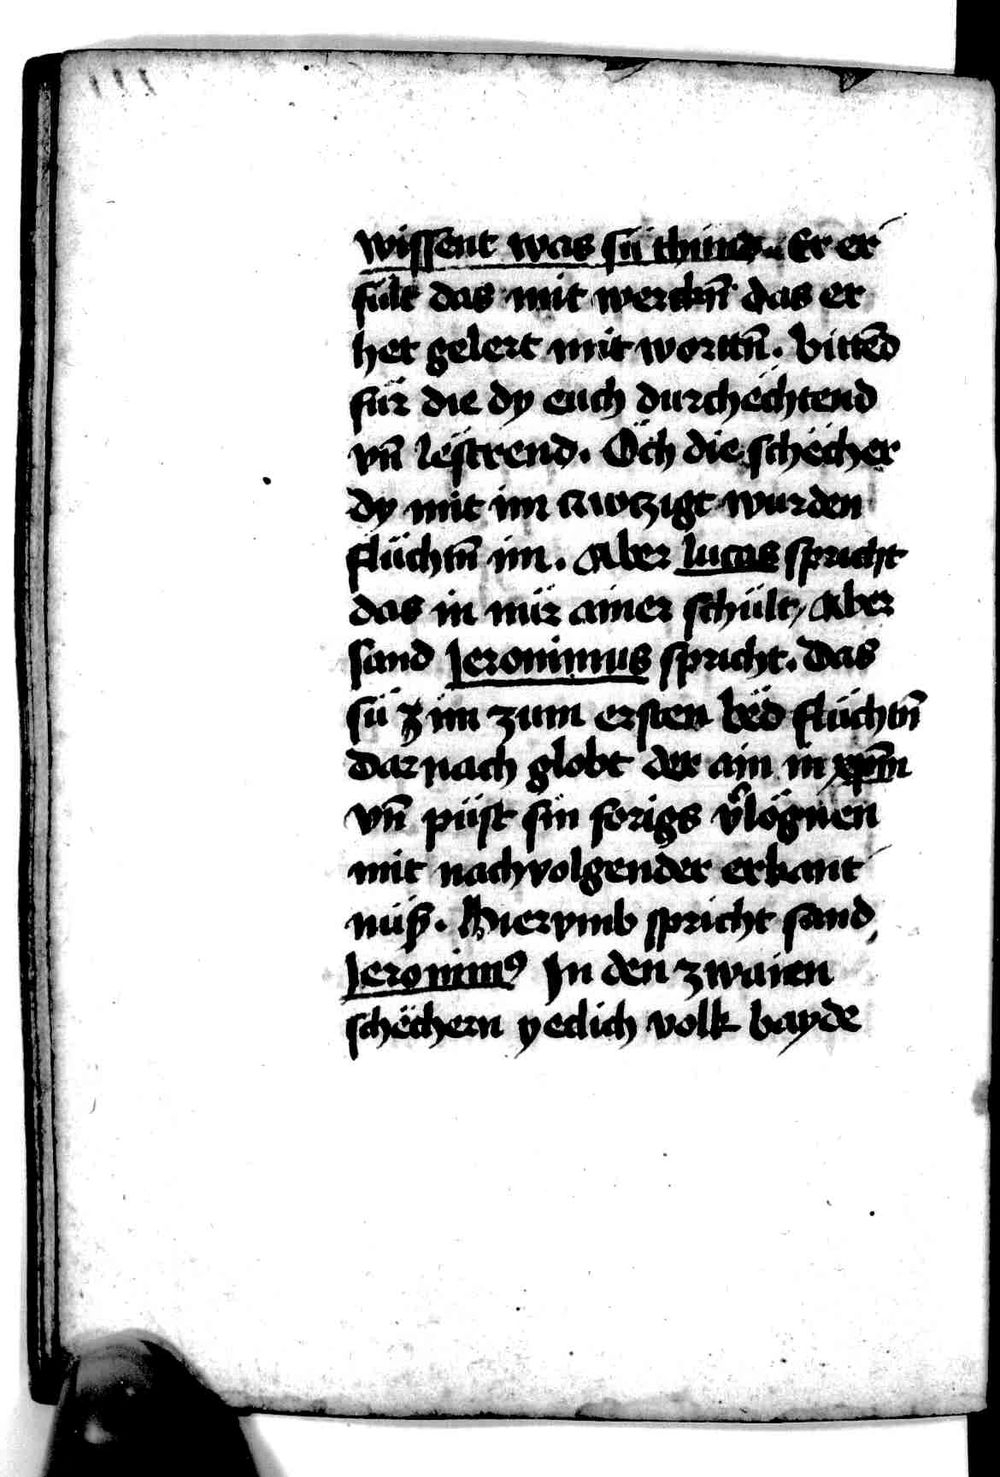 wissent was sü thund. Er er
fült das mit werckn̄ das er
het gelert mit wortn̄. bittēd
für die dy euch durchëchtend
vn̄ lëstrend. Öch die schëcher
dy mit im wurden
flüchtn̄ im. Aber lucas spricht
das in nür ainer schült, Aber
sand Jeronimus spricht. das
sü im zum ersten bëd flüchtn̄
dar nach globt der ain in xp̄m
vn̄ püst sin forigs v̉lögnen
mit nachvolgender erkant
nüß. Hierymb spricht sand
Jeronimꝰ In den zwaien
schëchern yetlich volk bayde